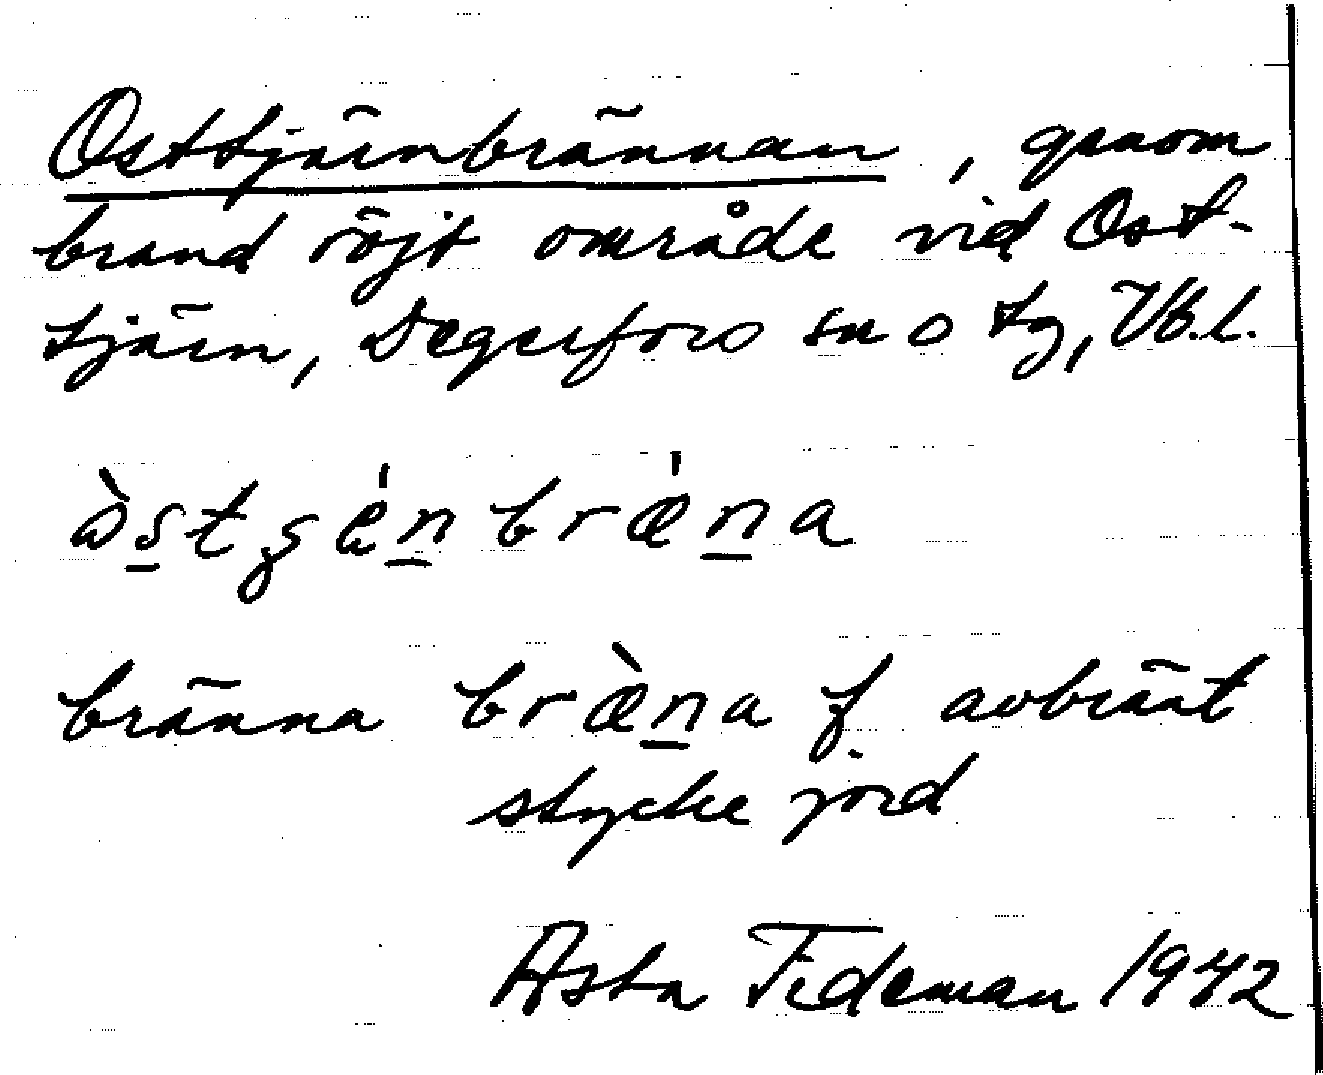 Osttjärnbrännan, genom
brand röjt område vid Ost-
tjärn, Degerfors sn o tg, Vb.l.
òstʒén bræ̀na
bränna bræ̀na f avbränt
stycke jord
Asta Tideman 1942